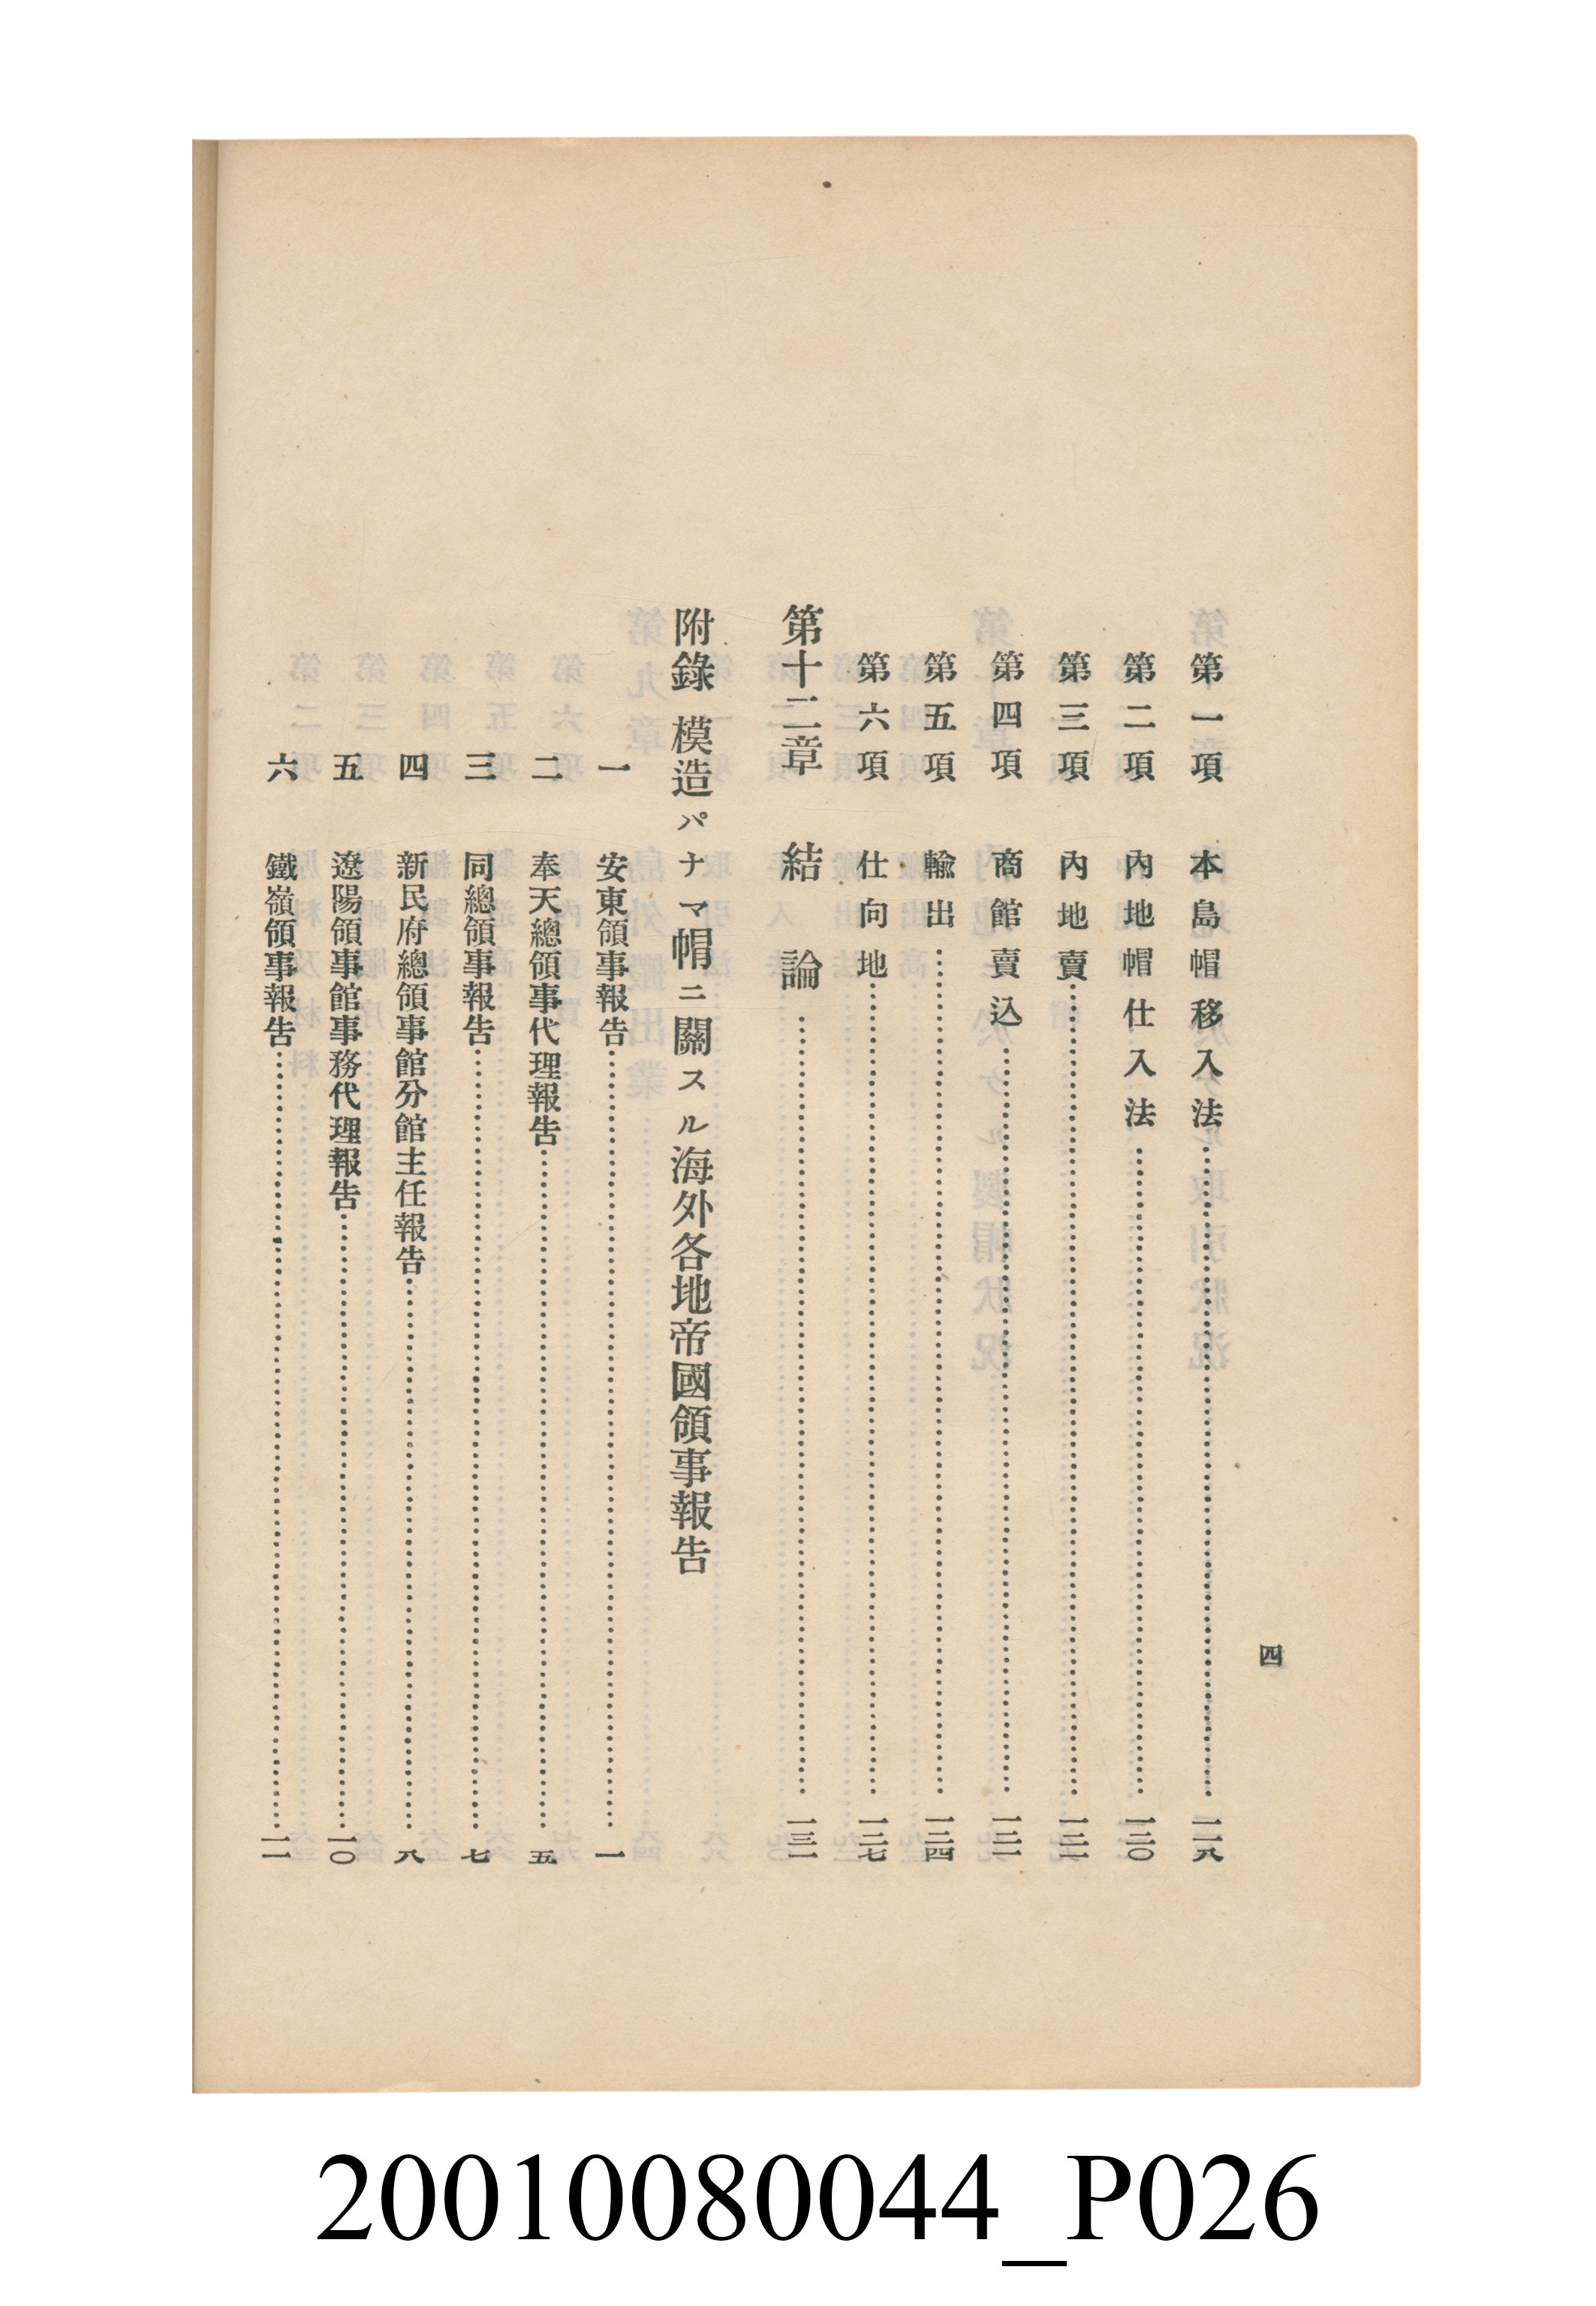 四
第一項 本島帽移入法…………一一八
第二項 內地帽仕入法…………一二〇
第三項 內地賣…………一二一
第四項 商館賣込…………一二二
第五項 輸出…………一二四
第六項 仕向地…………一二七
第十二章 結論…………一三一
附錄 模造パナマ帽ニ關スル海外各地帝國領事報告
一 安東領事報告…………一
二 奉天總領事代理報告…………五
三 同總領事報告…………七
四 新民府總領事館分館主任報告…………八
五 遼陽領事館事務代理報告…………一〇
六 鐵嶺領事報告…………一一
20010080044_P026